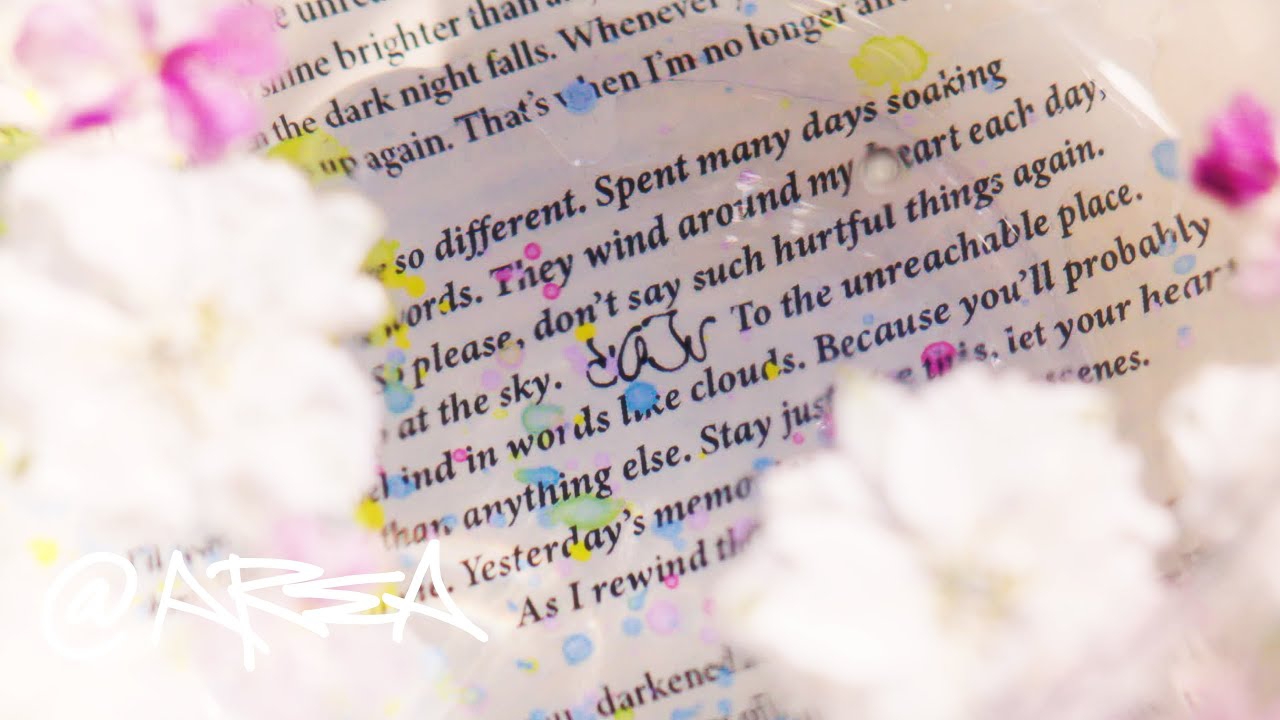 shine brighter than
the dark night falls. Whenever
up again. That's when I'm no longer
so different. Spent many days soaking
words. They wind around my heart each day,
so please, don't say such hurtful things again.
at the sky. To the unreachable place.
in words like clouds. Because you'll probably
than anything else. Stay just this, let your heart
Yesterday's scenes.
As I rewind
darkened
@AREA